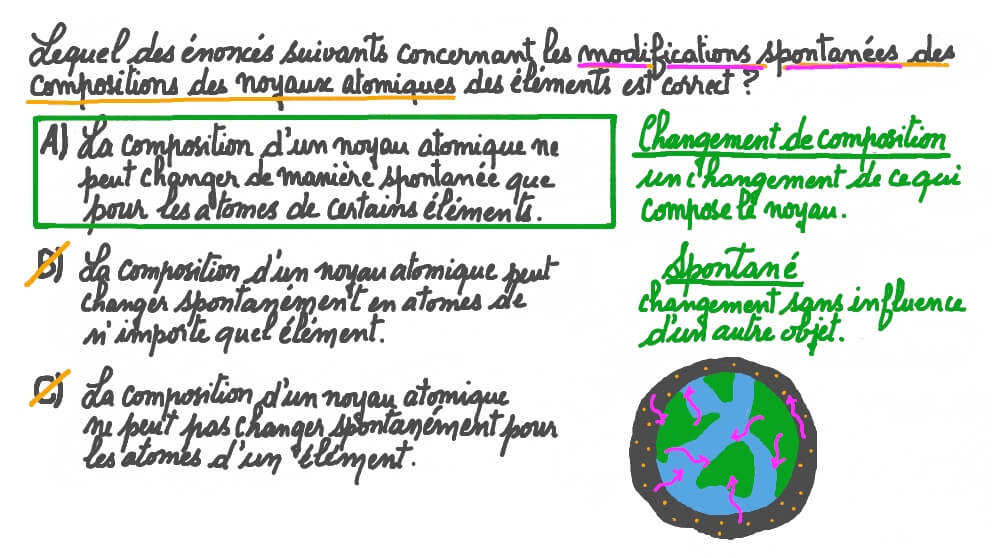 Lequel des énoncés suivants concernant les modifications spontanées des
compositions des noyaux atomiques des éléments est correct ?
A) La composition d'un noyau atomique ne
peut changer de manière spontanée que
pour les atomes de certains éléments.
B) La composition d'un noyau atomique peut
changer spontanément en atomes de
n'importe quel élément.
C) La composition d'un noyau atomique
ne peut pas changer spontanément pour
les atomes d'un élément.
Changement de composition
un changement de ce qui
compose le noyau.
Spontané
changement sans influence
d'un autre objet.